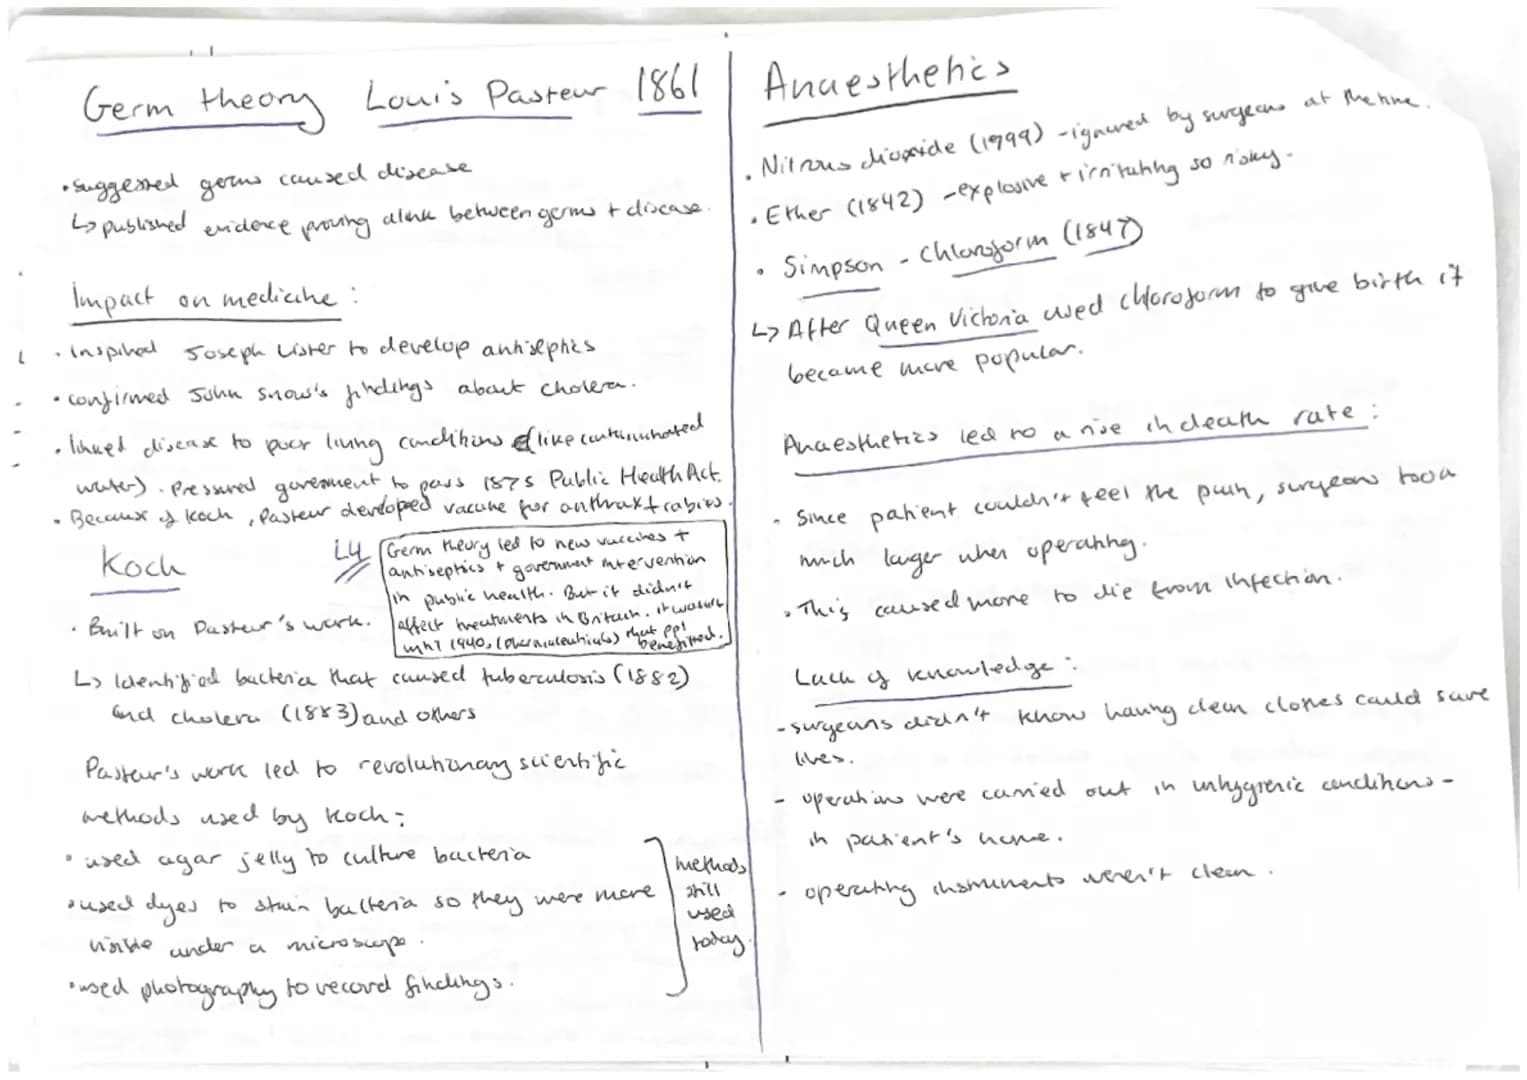 Germ theory Louis Pasteur 1861
• suggested germs caused disease
↳ published evidence proving a link between germs + disease.
Impact on medicine :
• Inspired Joseph Lister to develop antiseptics
• confirmed John Snow's findings about cholera.
• linked disease to poor living conditions (like contaminated
water). Pressured government to pass 1875 Public Health Act.
• Because of Koch, Pasteur developed vaccine for anthrax + rabies.
↳ Germ theory led to new vaccines +
antiseptics + government intervention
in public health. But it didn't
affect treatments in Britain. it wasn't
until 1940s (pharmaceuticals) that ppl
benefitted.
Koch
• Built on Pasteur's work.
↳ Identified bacteria that caused tuberculosis (1882)
and cholera (1883) and others
Pasteur's work led to revolutionary scientific
methods used by Koch :
• used agar jelly to culture bacteria
• used dyes to stain bacteria so they were more
visible under a microscope.
• used photography to record findings.
methods
still
used
today.
Anaesthetics
• Nitrous dioxide (1799) - ignored by surgeons at the time.
• Ether (1842) - explosive + irritating so risky.
• Simpson - Chloroform (1847)
↳ After Queen Victoria used chloroform to give birth it
became more popular.
Anaesthetics led to a rise in death rate :
• Since patient couldn't feel the pain, surgeons took
much longer when operating.
• This caused more to die from infection.
Lack of knowledge :
- surgeons didn't know having clean clothes could save
lives.
- operations were carried out in unhygienic conditions -
in patient's home.
- operating instruments weren't clean.